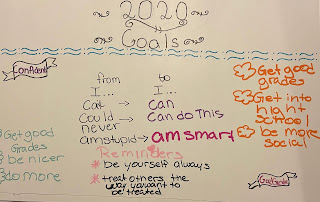 2020
Goals
Confident
from to
I... I...
Can't → Can
Could never → Can do This
am stupid → am smart
Get good
grades
Get into
hight
school
be more
social
Get good
Grades
be nicer
to more
Reminders
be yourself always
treat others the
way you want to
be treated